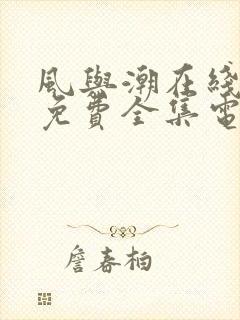 風與潮在綫
免費全集電
詹春柏